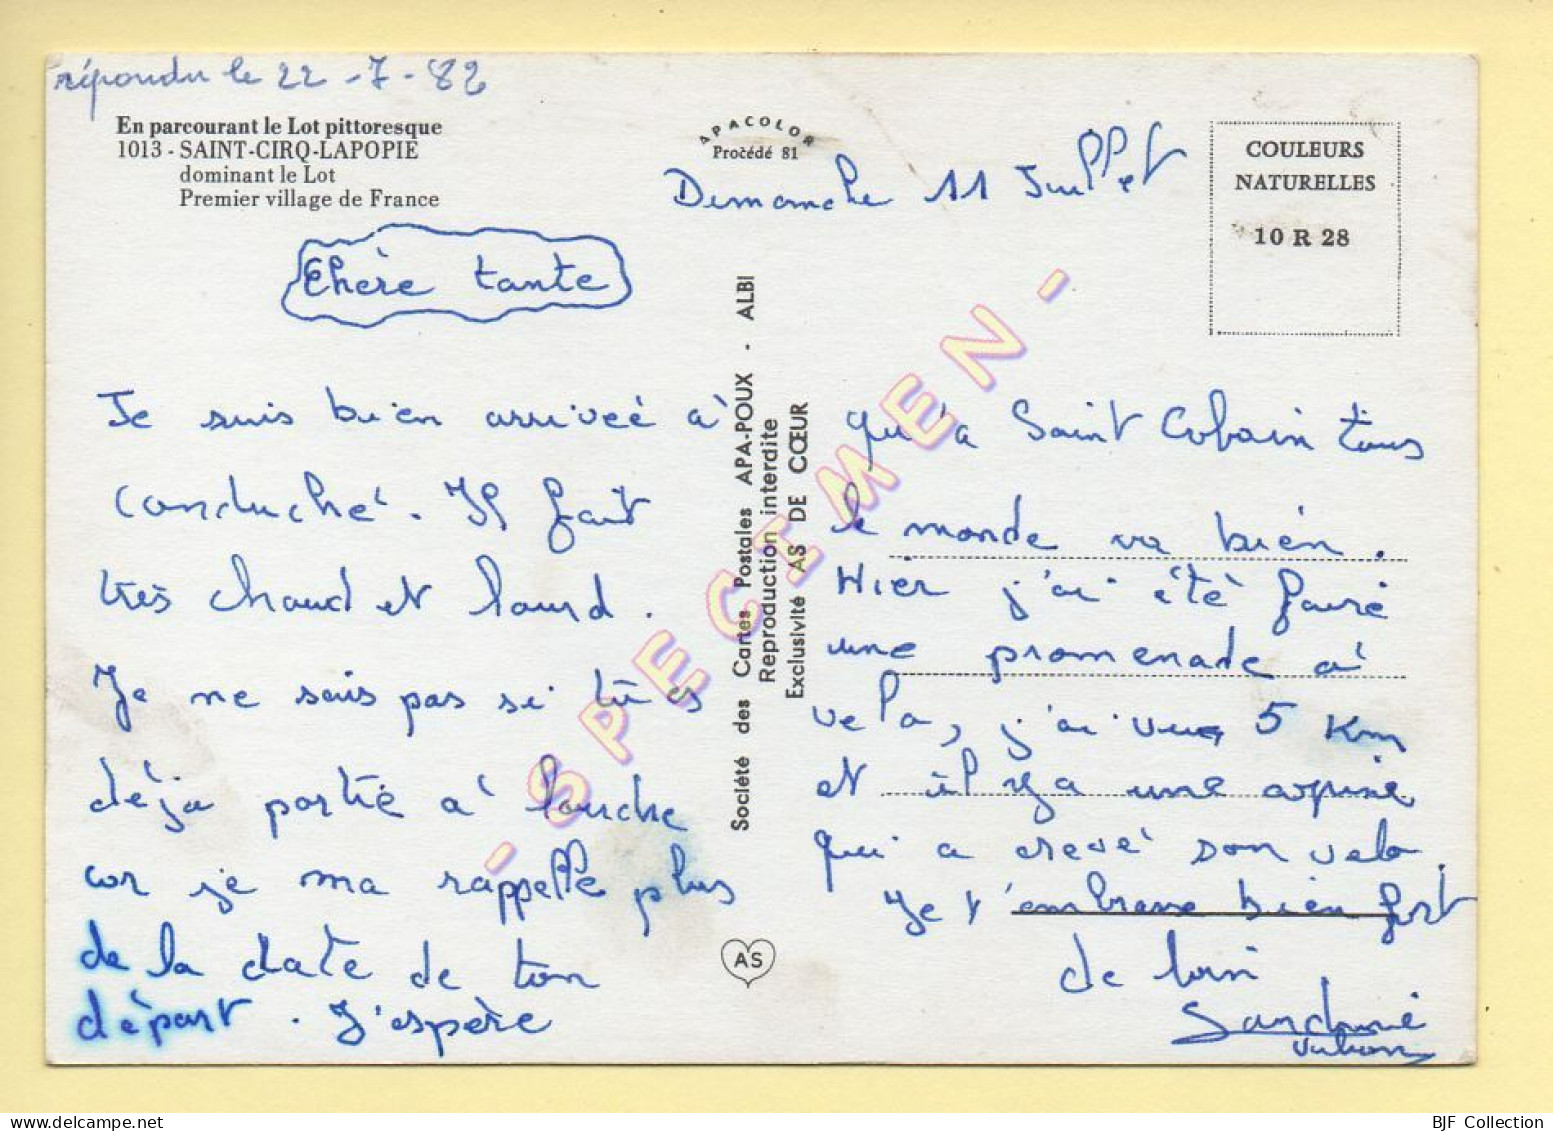 répondu le 22-7-82
En parcourant le Lot pittoresque
1013 - SAINT-CIRQ-LAPOPIE
dominant le Lot
Premier village de France
APACOLOR
Procédé 81
COULEURS
NATURELLES
10 R 28
Dimanche 11 Juillet
Chère tante
Je suis bien arriveé à
conduché. Il fait
très chaud et lourd.
Je ne sais pas si tu es
déja partie à
car je me rappelle plus
de la date de ton
départ. J'espère
qu'à Saint Cobain tous
le monde va bien.
Hier j'ai été faire
une promenade à
velo, j'ai 5 Km
et il y a une copine
qui a crevé son velo.
Je t'embrasse bien fort
de loin
Sandrine
Société des Cartes Postales APA-POUX - ALBI
Reproduction interdite
Exclusivité AS DE CŒUR
- SPECIMEN -
AS
BJF Collection